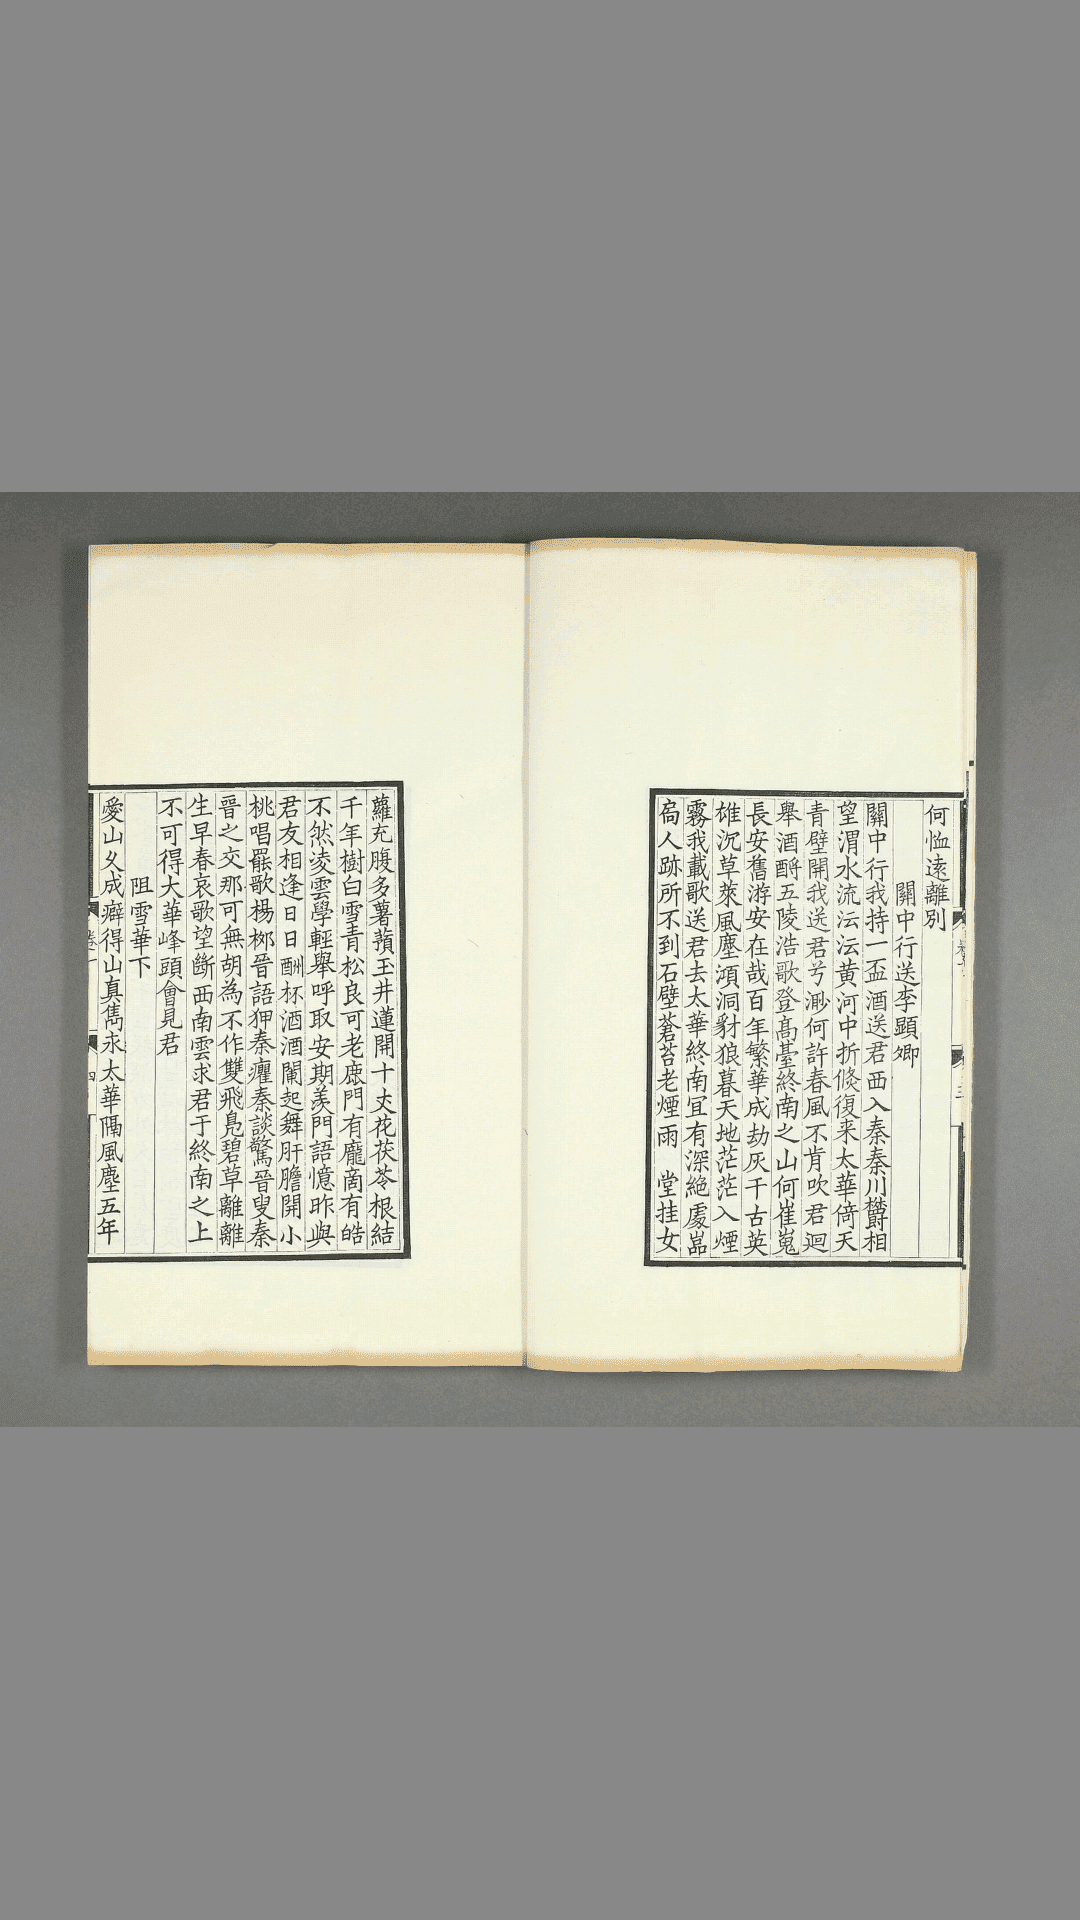 何恤遠離別
關中行送李顯卿
關中行我持一盃酒送君西入秦秦川鬱相
望渭水流沄沄黄河中折倏復来太華倚天
青壁開我送君兮渺何許春風不肯吹君迴
舉酒酹五陵浩歌登髙臺終南之山何崔嵬
長安舊游安在哉百年繁華成劫灰千古英
雄沉草萊風塵澒洞豺狼暮天地茫茫入煙
霧我載歌送君去太華終南冝有深絶處嵓
扄人跡所不到石壁蒼苔老煙雨 堂挂女
蘿充腹多薯蕷玉井蓮開十丈花茯苓根結
千年樹白雪青松良可老鹿門有龐啇有皓
不然凌雲學輕舉呼取安期羨門語憶昨與
君友相逢日日酬杯酒酒闌起舞肝膽開小
桃唱罷歌楊栁晉語狎秦癯秦談驚晉叟秦
晉之交那可無胡為不作雙飛鳬碧草離離
生早春哀歌望斷西南雲求君于終南之上
不可得大華峰頭會見君
阻雪華下
愛山久成癖得山真雋永太華隔風塵五年